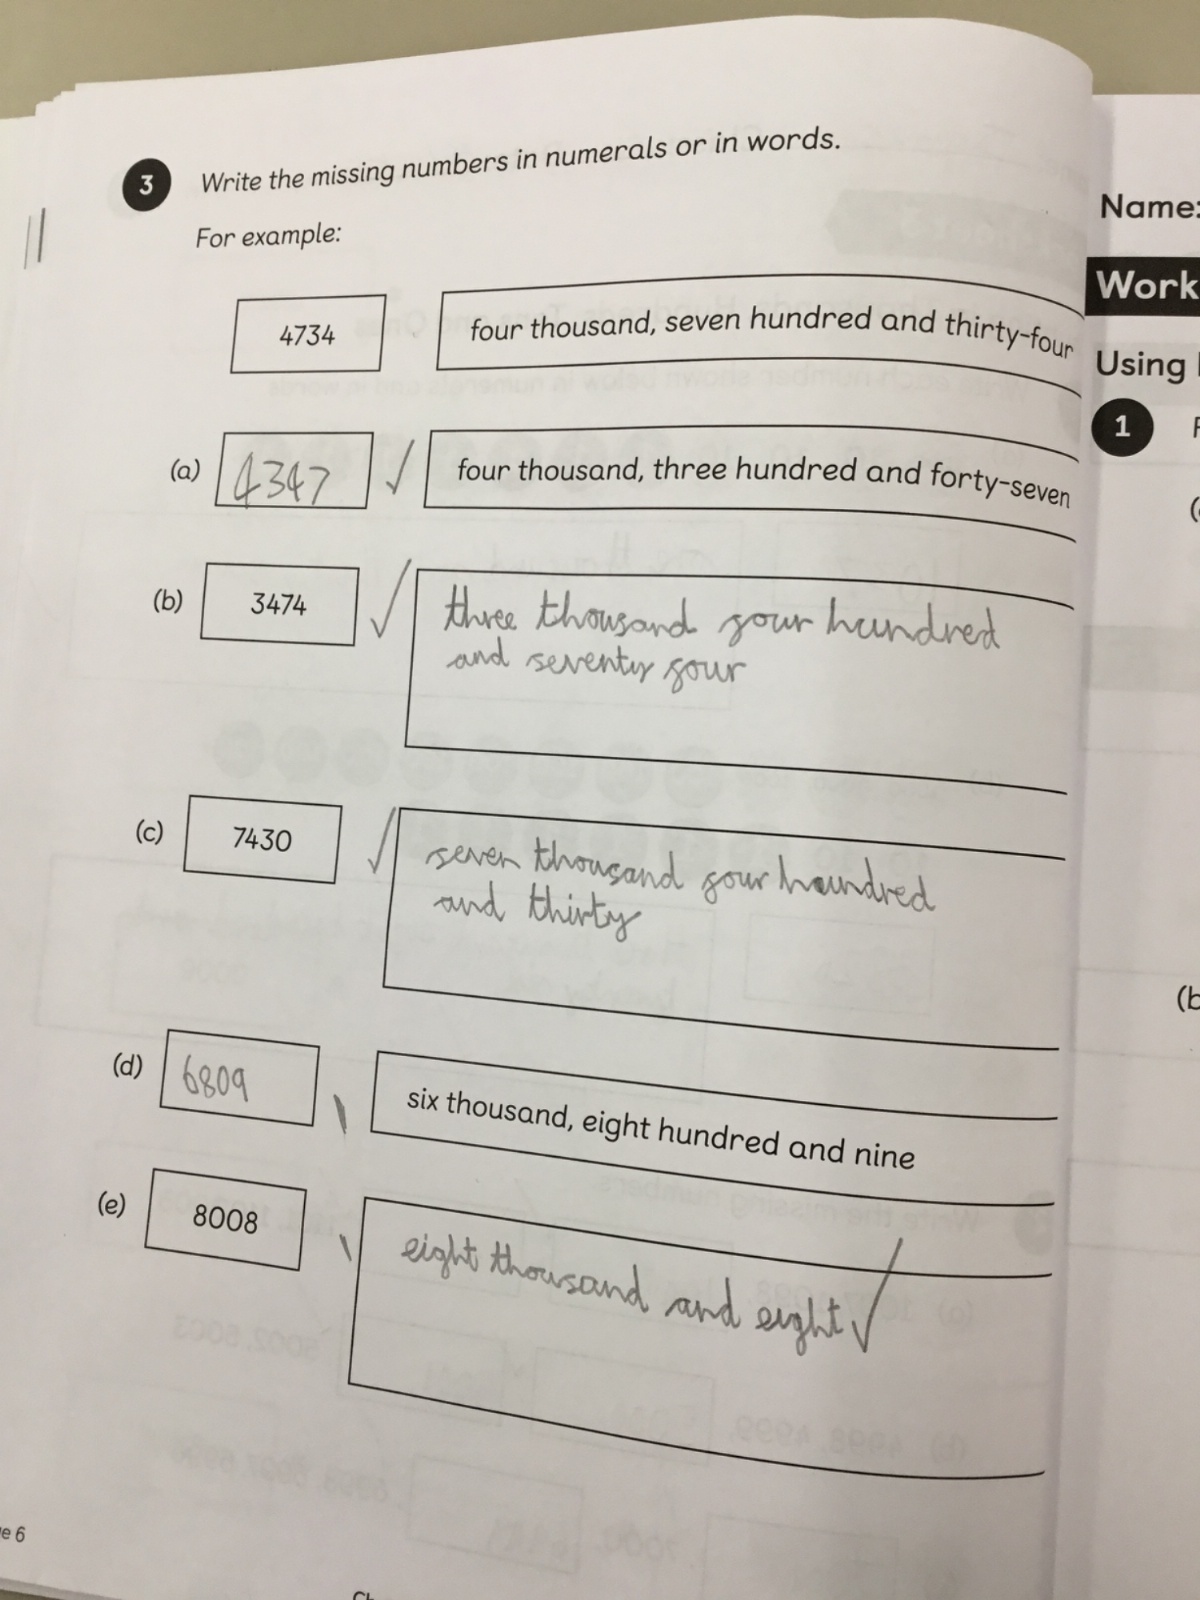 3 Write the missing numbers in numerals or in words.
For example:
4734 four thousand, seven hundred and thirty-four
(a) 4347 four thousand, three hundred and forty-seven
(b) 3474 three thousand four hundred
and seventy four
(c) 7430 seven thousand four hundred
and thirty
(d) 6809 six thousand, eight hundred and nine
(e) 8008 eight thousand and eight
e 6
Name:
Work
Using
1
(b